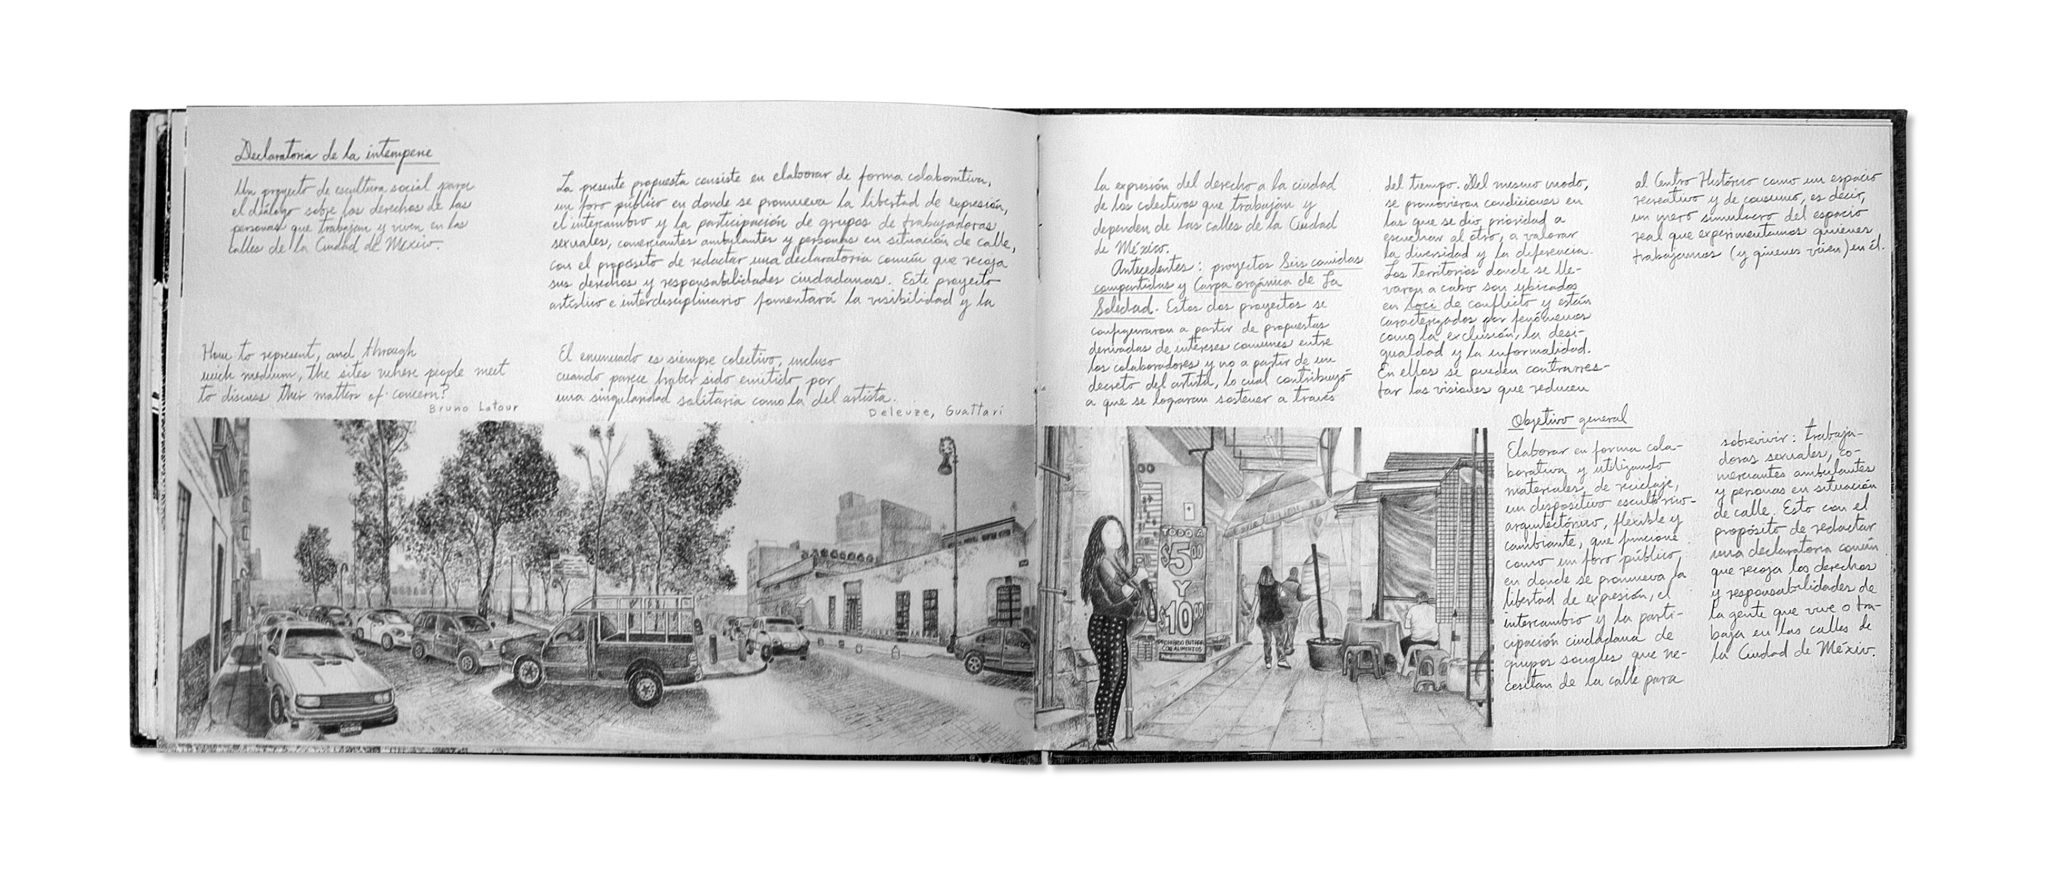 Declaratoria de la intemperie
Un proyecto de escultura social para
el diálogo sobre los derechos de las
personas que trabajan y viven en las
calles de la Ciudad de México.
La presente propuesta consiste en elaborar de forma colaborativa,
un foro público en donde se promueva la libertad de expresión,
el intercambio y la participación de grupos de trabajadoras
sexuales, comerciantes ambulantes y personas en situación de calle,
con el propósito de redactar una declaratoria común que recoja
sus derechos y responsabilidades ciudadanas. Este proyecto
artístico e interdisciplinario fomentará la visibilidad y la
How to represent, and through
wich medium, the sites where people meet
to discuss their matters of concern?
Bruno Latour
El enunciado es siempre colectivo, incluso
cuando parece haber sido emitido por
una singularidad solitaria como la del artista.
Deleuze, Guattari
la expresión del derecho a la ciudad
de los colectivos que trabajan y
dependen de las calles de la Ciudad
de México.
Antecedentes: proyectos Seis comidas
compartidas y Carpa orgánica de La
Soledad. Estos dos proyectos se
configuraron a partir de propuestas
derivadas de intereses comunes entre
los colaboradores y no a partir de un
decreto del artista, lo cual contribuyó
a que se lograran sostener a través
del tiempo. Del mismo modo,
se promovieron condiciones en
las que se dio prioridad a
escuchar al otro, a valorar
la diversidad y la diferencia.
Los territorios donde se lle-
varon a cabo son ubicados
en loci de conflicto y están
caracterizados por fenómenos
como la exclusión, la desi-
gualdad y la informalidad.
En ellos se pueden contrarres-
tar las visiones que reducen
al Centro Histórico como un espacio
recreativo y de consumo, es decir,
un mero simulacro del espacio
real que experimentamos quienes
trabajamos (y quienes viven) en él.
TODO A
$5.00
Y
10.00
CON ALIMENTOS
Objetivo general
Elaborar en forma cola-
borativa y utilizando
materiales de reciclaje,
un dispositivo escultórico-
arquitectónico, flexible y
cambiante, que funcione
como un foro público,
en donde se promueva la
libertad de expresión, el
intercambio y la parti-
cipación ciudadana de
grupos sociales que ne-
cesitan de la calle para
sobrevivir: trabaja-
doras sexuales, co-
merciantes ambulantes
y personas en situación
de calle. Esto con el
propósito de redactar
una declaratoria común
que recoja los derechos
y responsabilidades de
la gente que vive o tra-
baja en las calles de
la Ciudad de México.